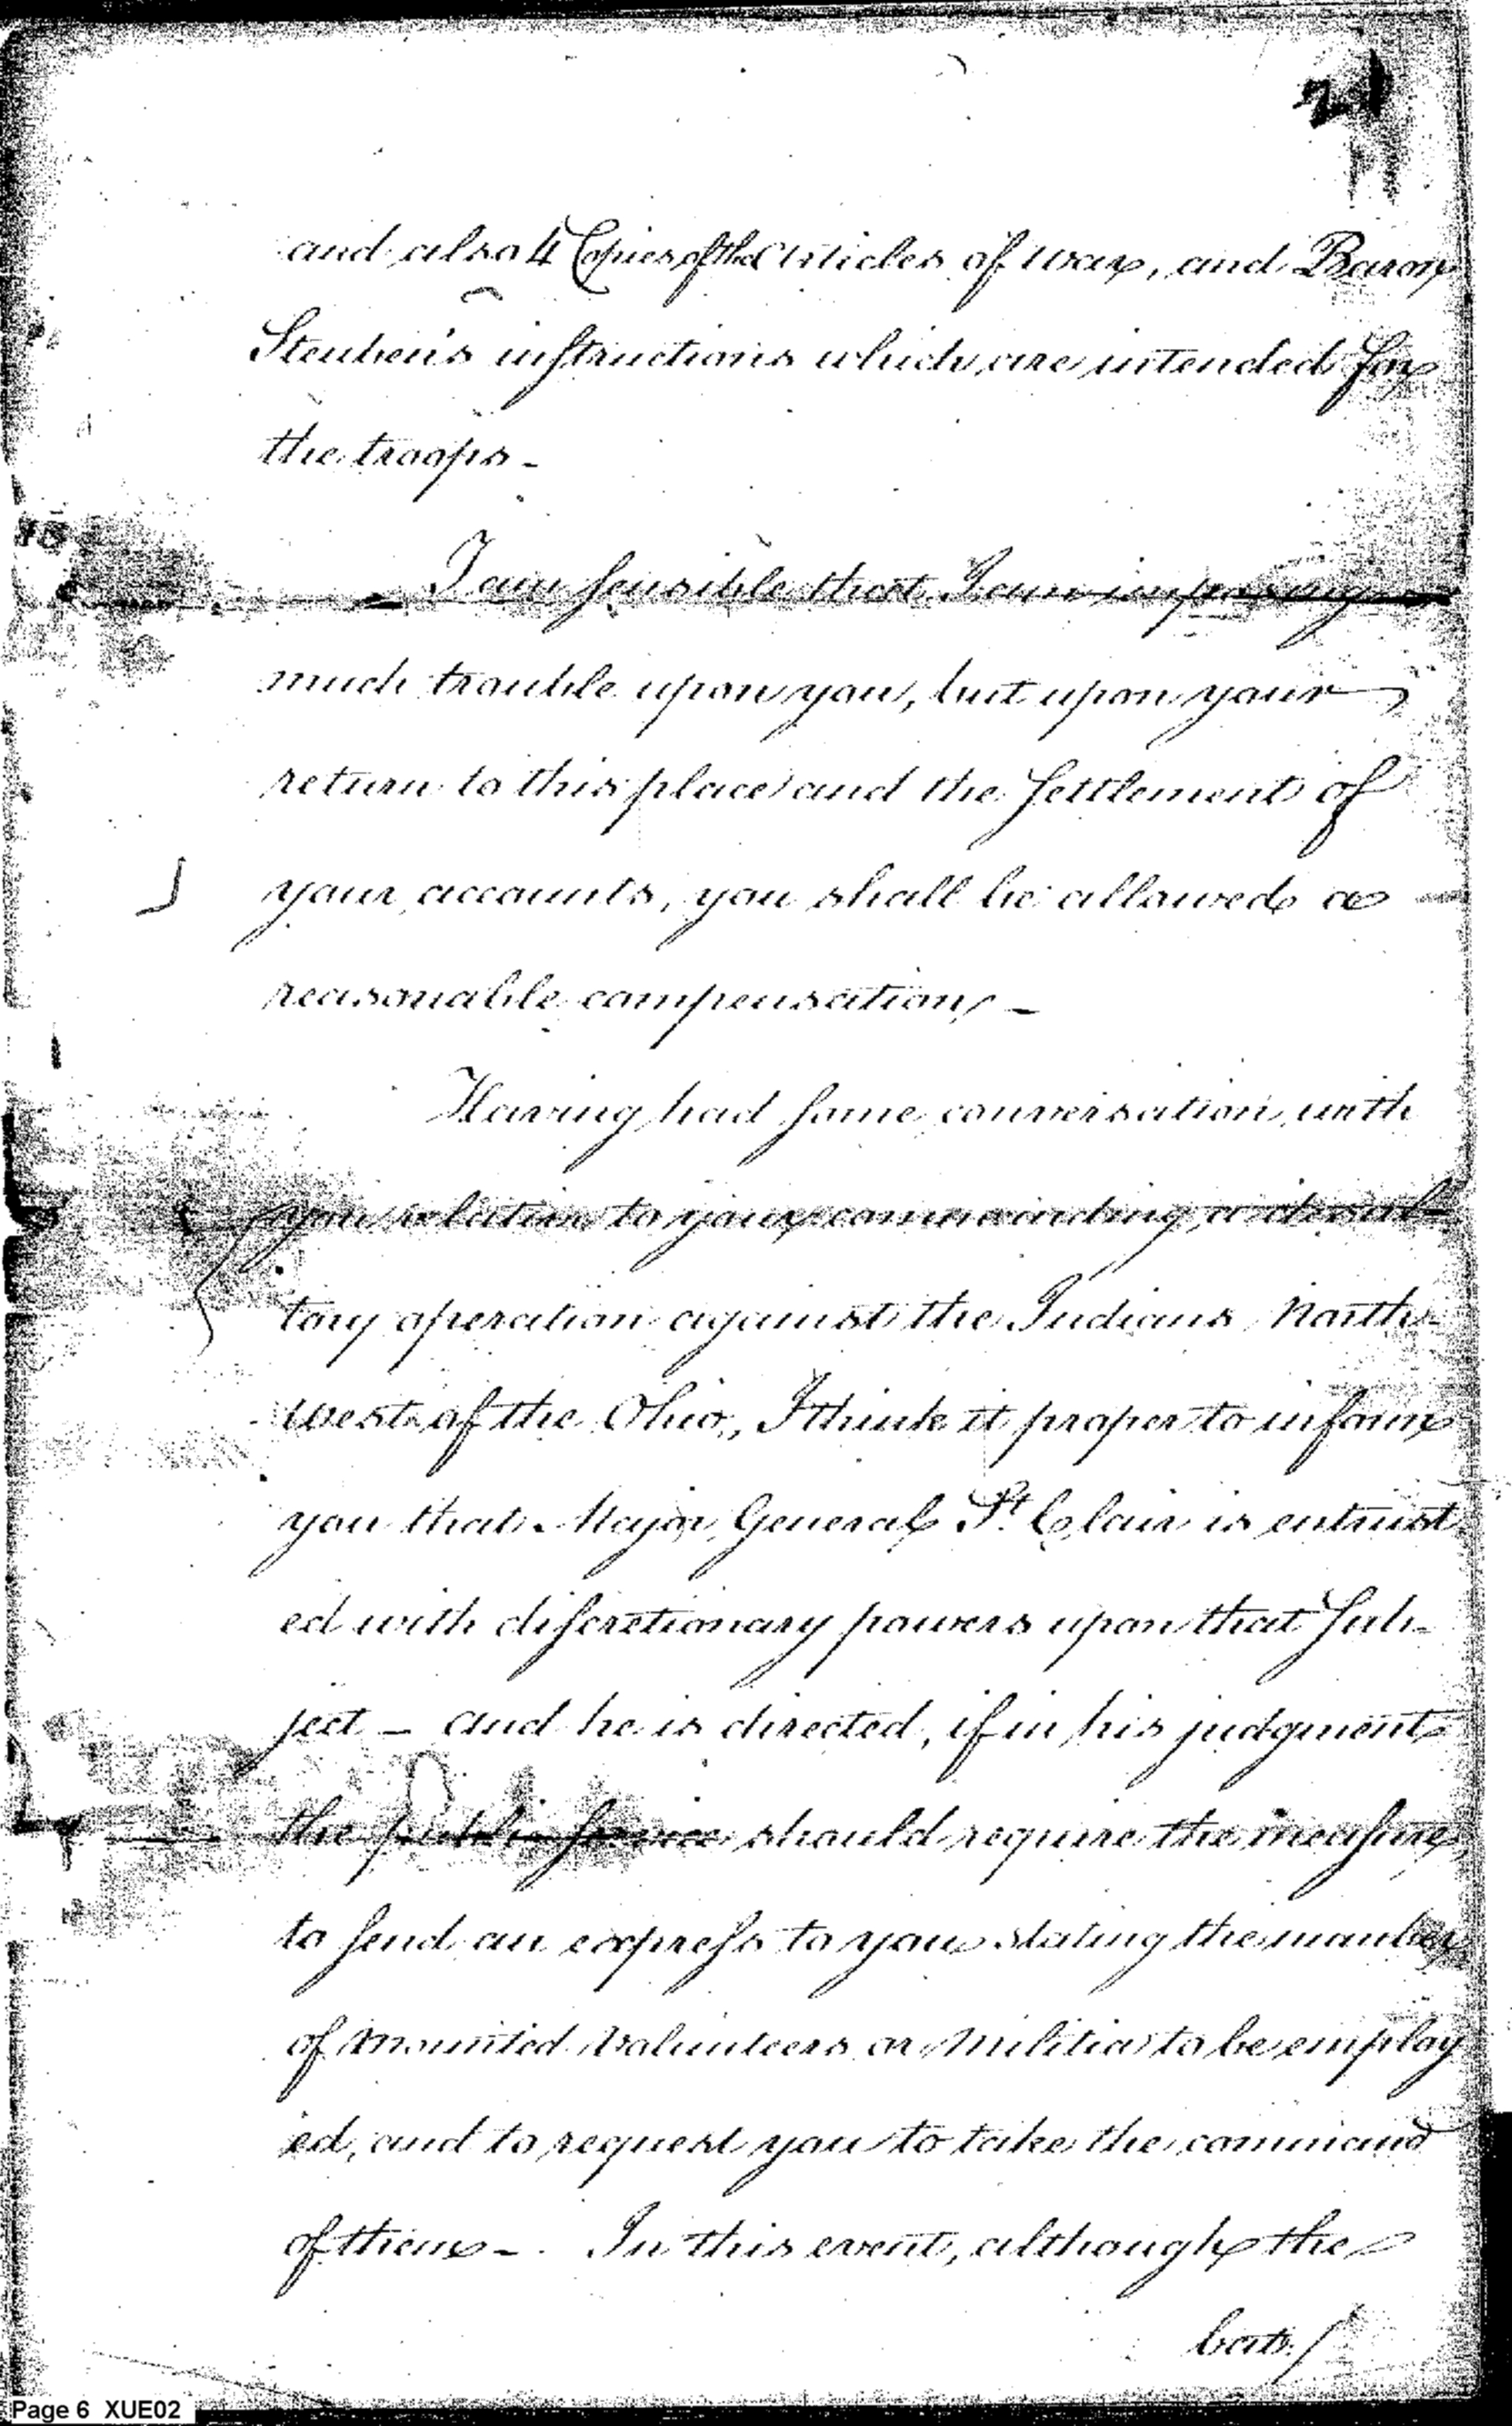 21
and also 4 Copies of the Articles of War, and Baron
Steuben's instructions which are intended for
the troops –
I am sensible that I am imposing
much trouble upon you, but upon your
return to this place and the Settlement of
your accounts, you shall be allowed a
reasonable compensation, –
Having had some conversation with
you relative to your commanding a desul-
tory operation against the Indians North
West of the Ohio, I think it proper to inform
you that Major General St. Clair is entrust
ed with discretionary powers upon that Sub-
ject – and he is directed, if in his judgment
the public service should require the measure,
to send an express to you stating the number
of mounted Volunteers or Militia to be employ
ed, and to request you to take the command
of them –. In this event, although the
Page 6 XUE02